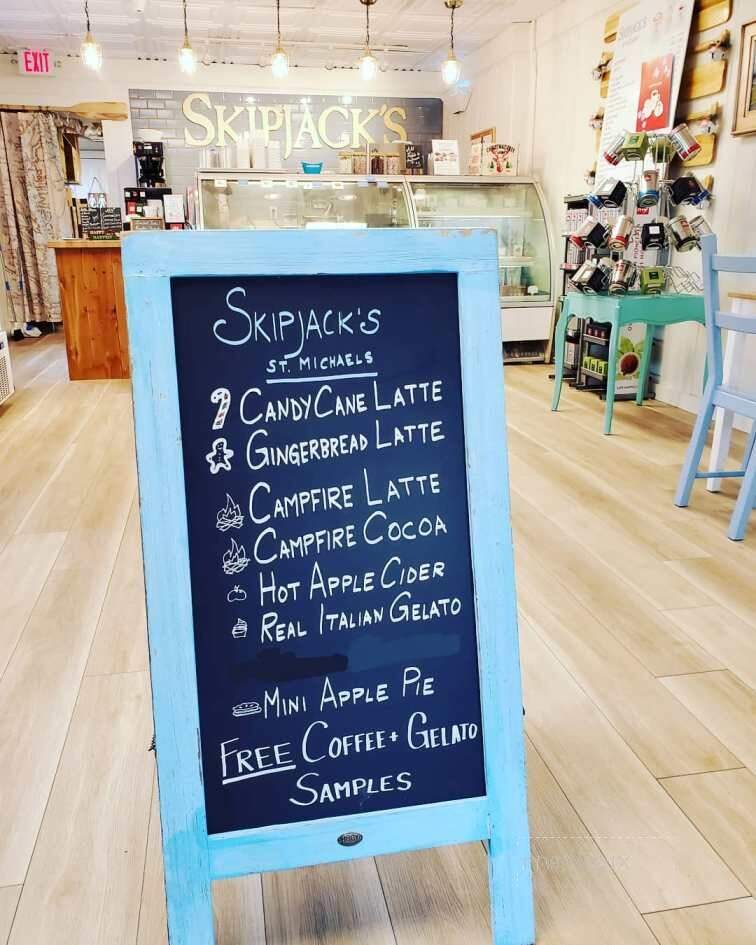 EXIT
SKIPJACK'S
SKIPJACK'S
ST. MICHAELS
CANDY CANE LATTE
GINGERBREAD LATTE
CAMPFIRE LATTE
CAMPFIRE COCOA
HOT APPLE CIDER
REAL ITALIAN GELATO
MINI APPLE PIE
FREE COFFEE + GELATO
SAMPLES